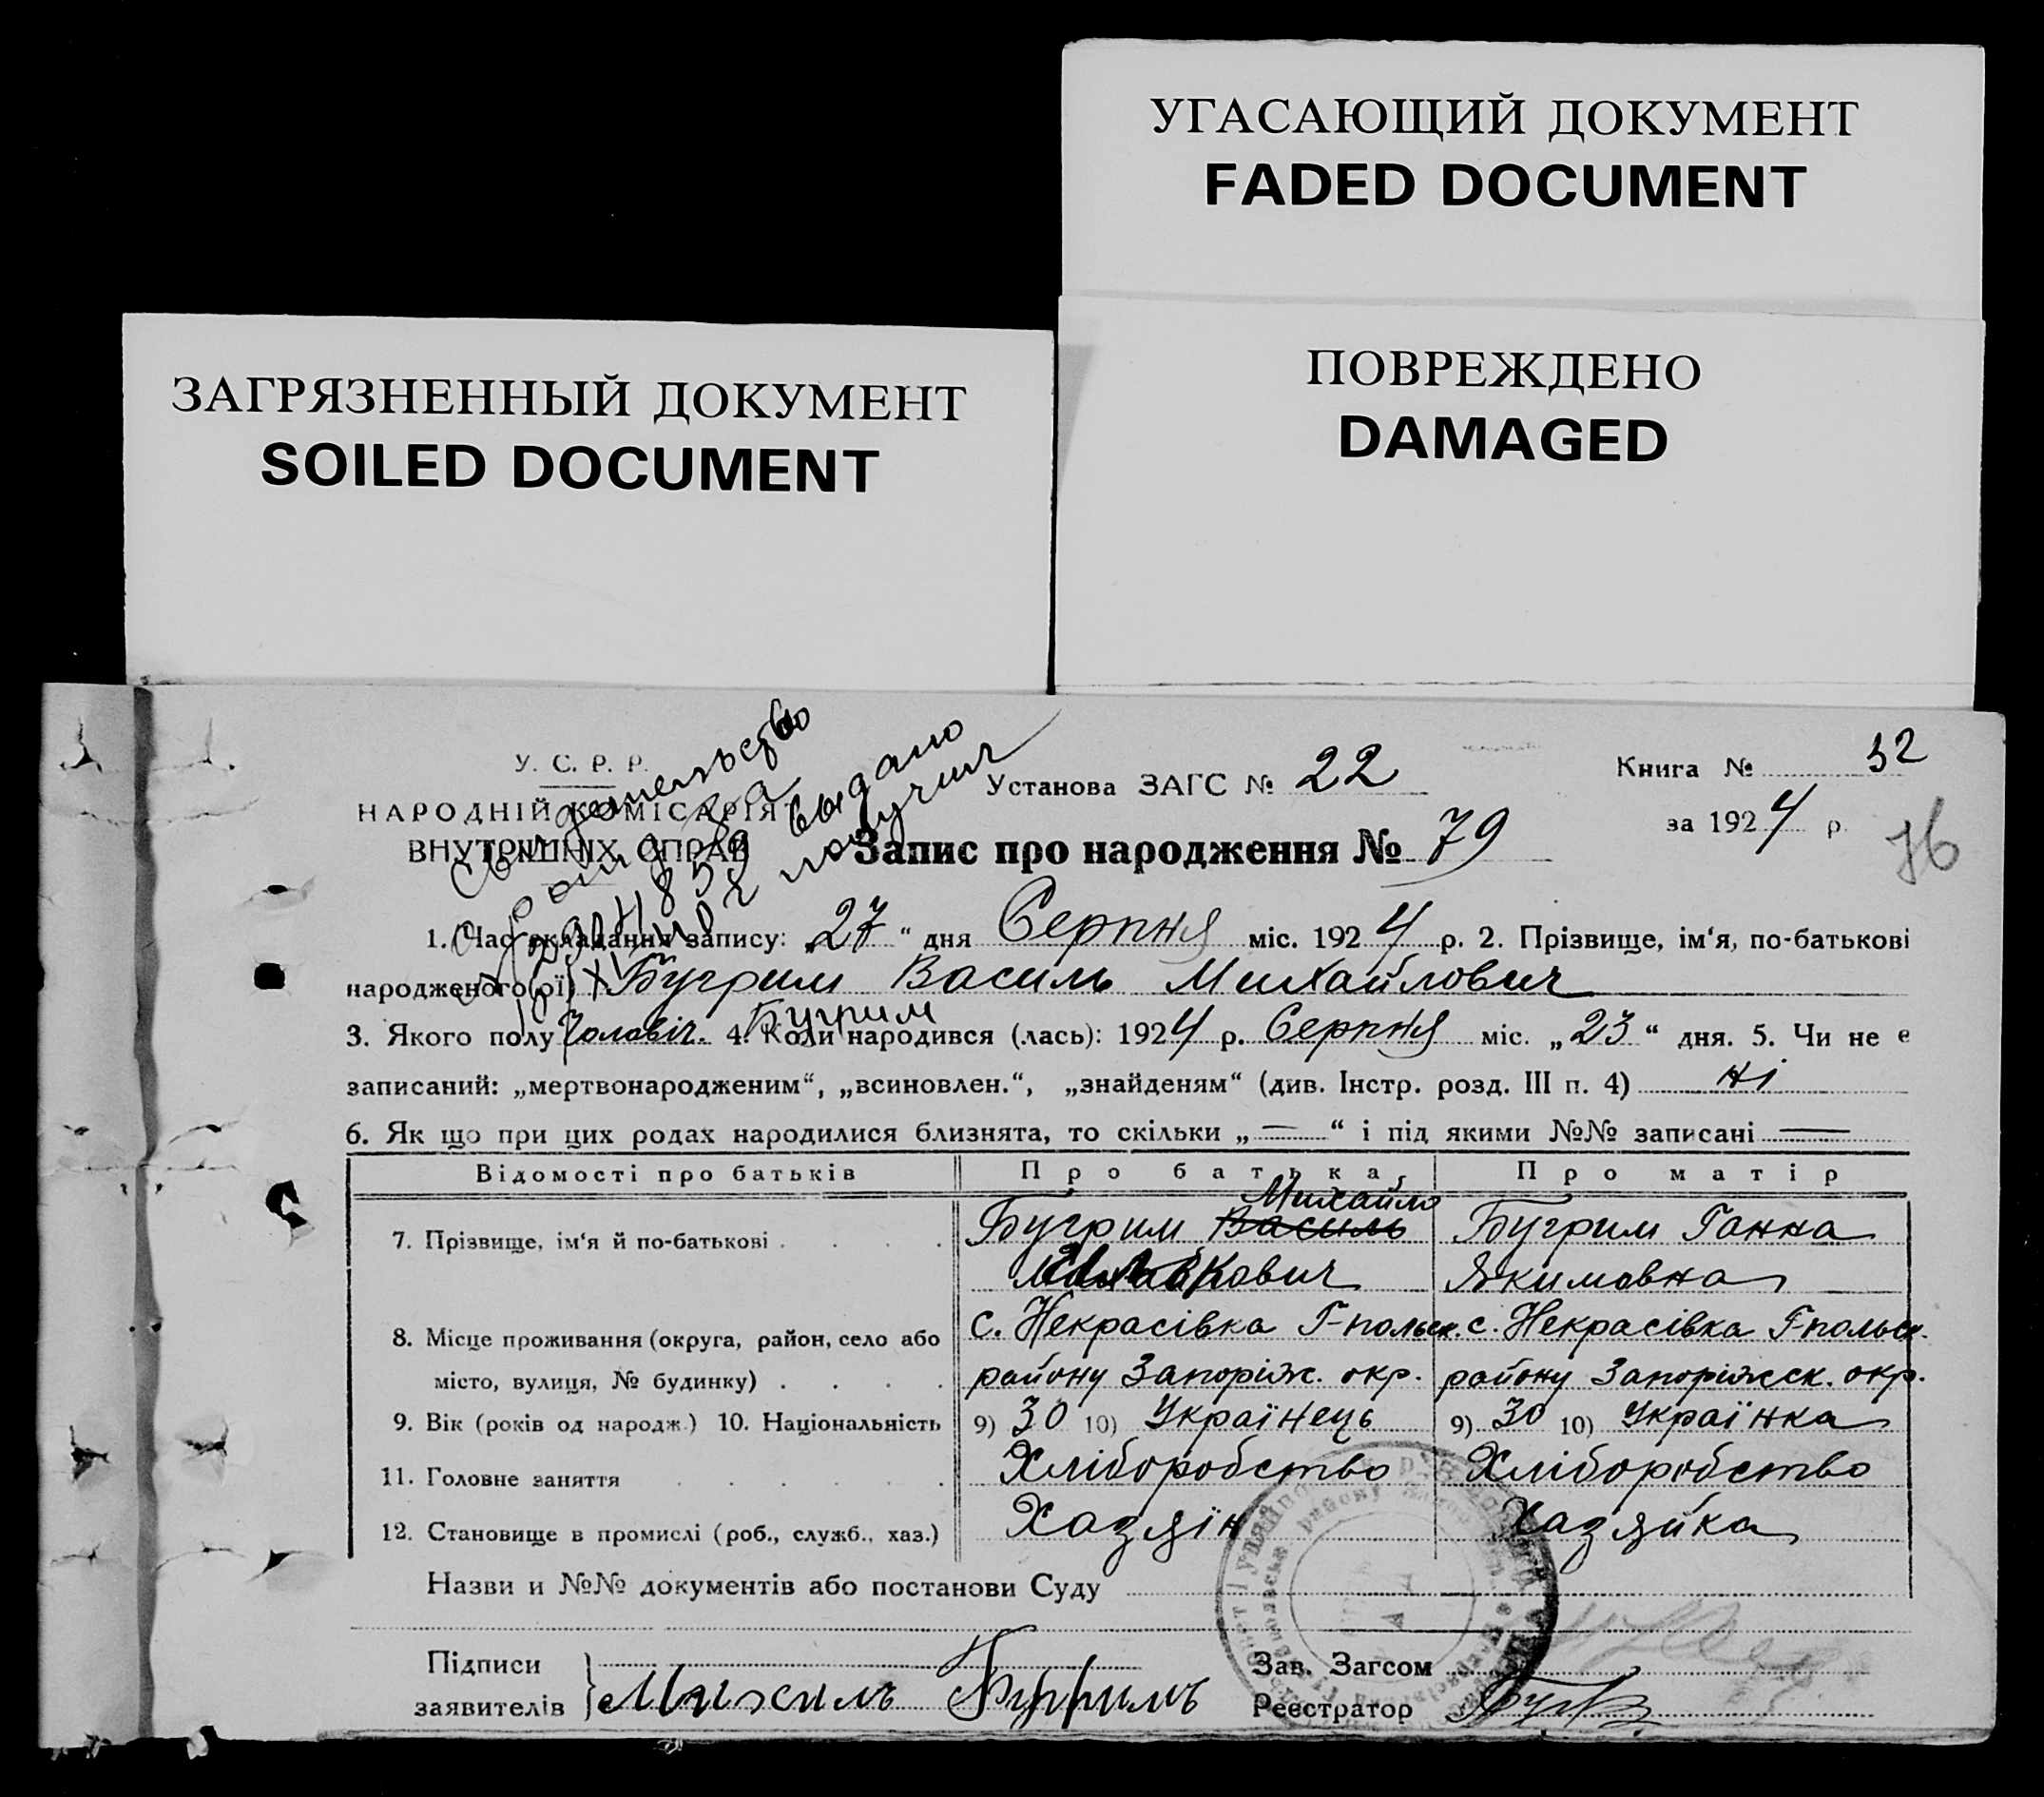 УГАСАЮЩИЙ ДОКУМЕНТ
FADED DOCUMENT
ЗАГРЯЗНЕННЫЙ ДОКУМЕНТ
SOILED DOCUMENT
ПОВРЕЖДЕНО
DAMAGED
У. С. Р. Р.
НАРОДНІЙ КОМІСАРІЯТ
ВНУТРІШНІХ СПРАВ
Свидетельство
выдано
получил
Установа ЗАГС № 22
Книга № 32
за 1924 р.
76
Запис про народження № 79
1. Час складання запису: „27“ дня Серпня міс. 1924 р. 2. Прізвище, ім‘я, по-батькові
народженого(ої) Бугрим Василь Михайлович
Бугрим
3. Якого полу Чоловіч. 4. Коли народився (лась): 1924 р. Серпня міс. „23“ дня. 5. Чи не є
записаний: „мертвонародженим“, „всиновлен.“, „знайденям“ (див. Інстр. розд. III п. 4) ні
6. Як що при цих родах народилися близнята, то скільки „—“ і під якими №№ записані —
Відомості про батьків Про батька Про матір
7. Прізвище, ім‘я й по-батькові Бугрим Василь Михайло Бугрим Ганна
Якимовна
8. Місце проживання (округа, район, село або с. Некрасівка Г-польск. с. Некрасівка Г-польск.
місто, вулиця, № будинку) району Запоріж. окр. району Запоріжск. окр.
9. Вік (років од народж.) 10. Національність 9) 30 10) Українець 9) 30 10) Українка
11. Головне заняття Хліборобство Хліборобство
12. Становище в промислі (роб., служб., хаз.) Хазяїн Хазяйка
Назви и №№ документів або постанови Суду
Підписи
заявителів Михаилъ Бугримъ
Зав. Загсом
Реєстратор